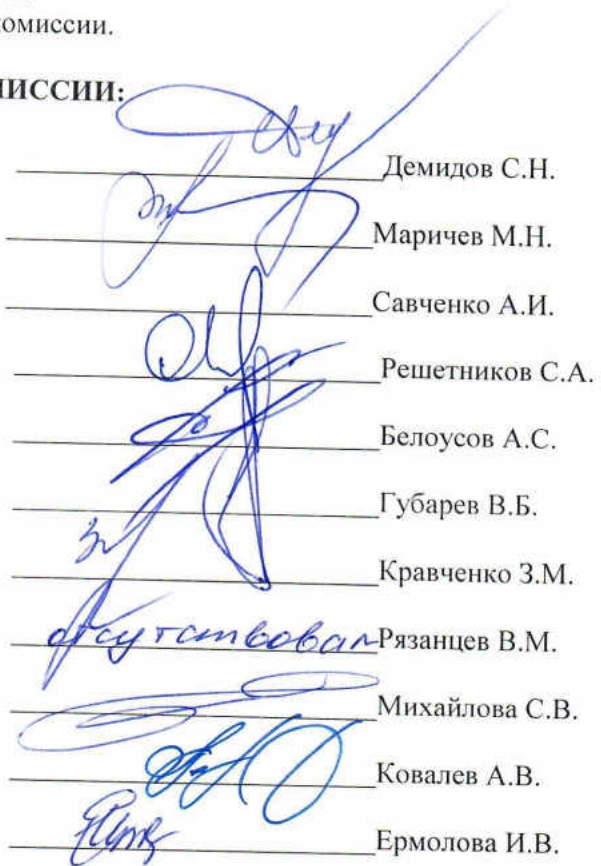 омиссии.
ИССИИ:
Демидов С.Н.
Маричев М.Н.
Савченко А.И.
Решетников С.А.
Белоусов А.С.
Губарев В.Б.
Кравченко З.М.
отсутствовал Рязанцев В.М.
Михайлова С.В.
Ковалев А.В.
Ермолова И.В.